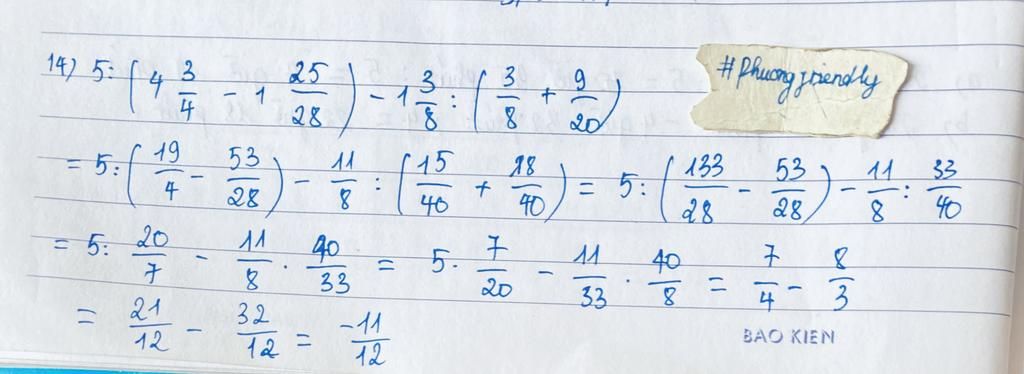 14) 5:(4 3/4 - 1 25/28) - 1 3/8 : (3/8 + 9/20)
#phuongfriendly
= 5:(19/4 - 53/28) - 11/8 : (15/40 + 18/40) = 5:(133/28 - 53/28) - 11/8 : 33/40
= 5: 20/7 - 11/8 . 40/33 = 5. 7/20 - 11/33 . 40/8 = 7/4 - 8/3
= 21/12 - 32/12 = -11/12
BAO KIEN